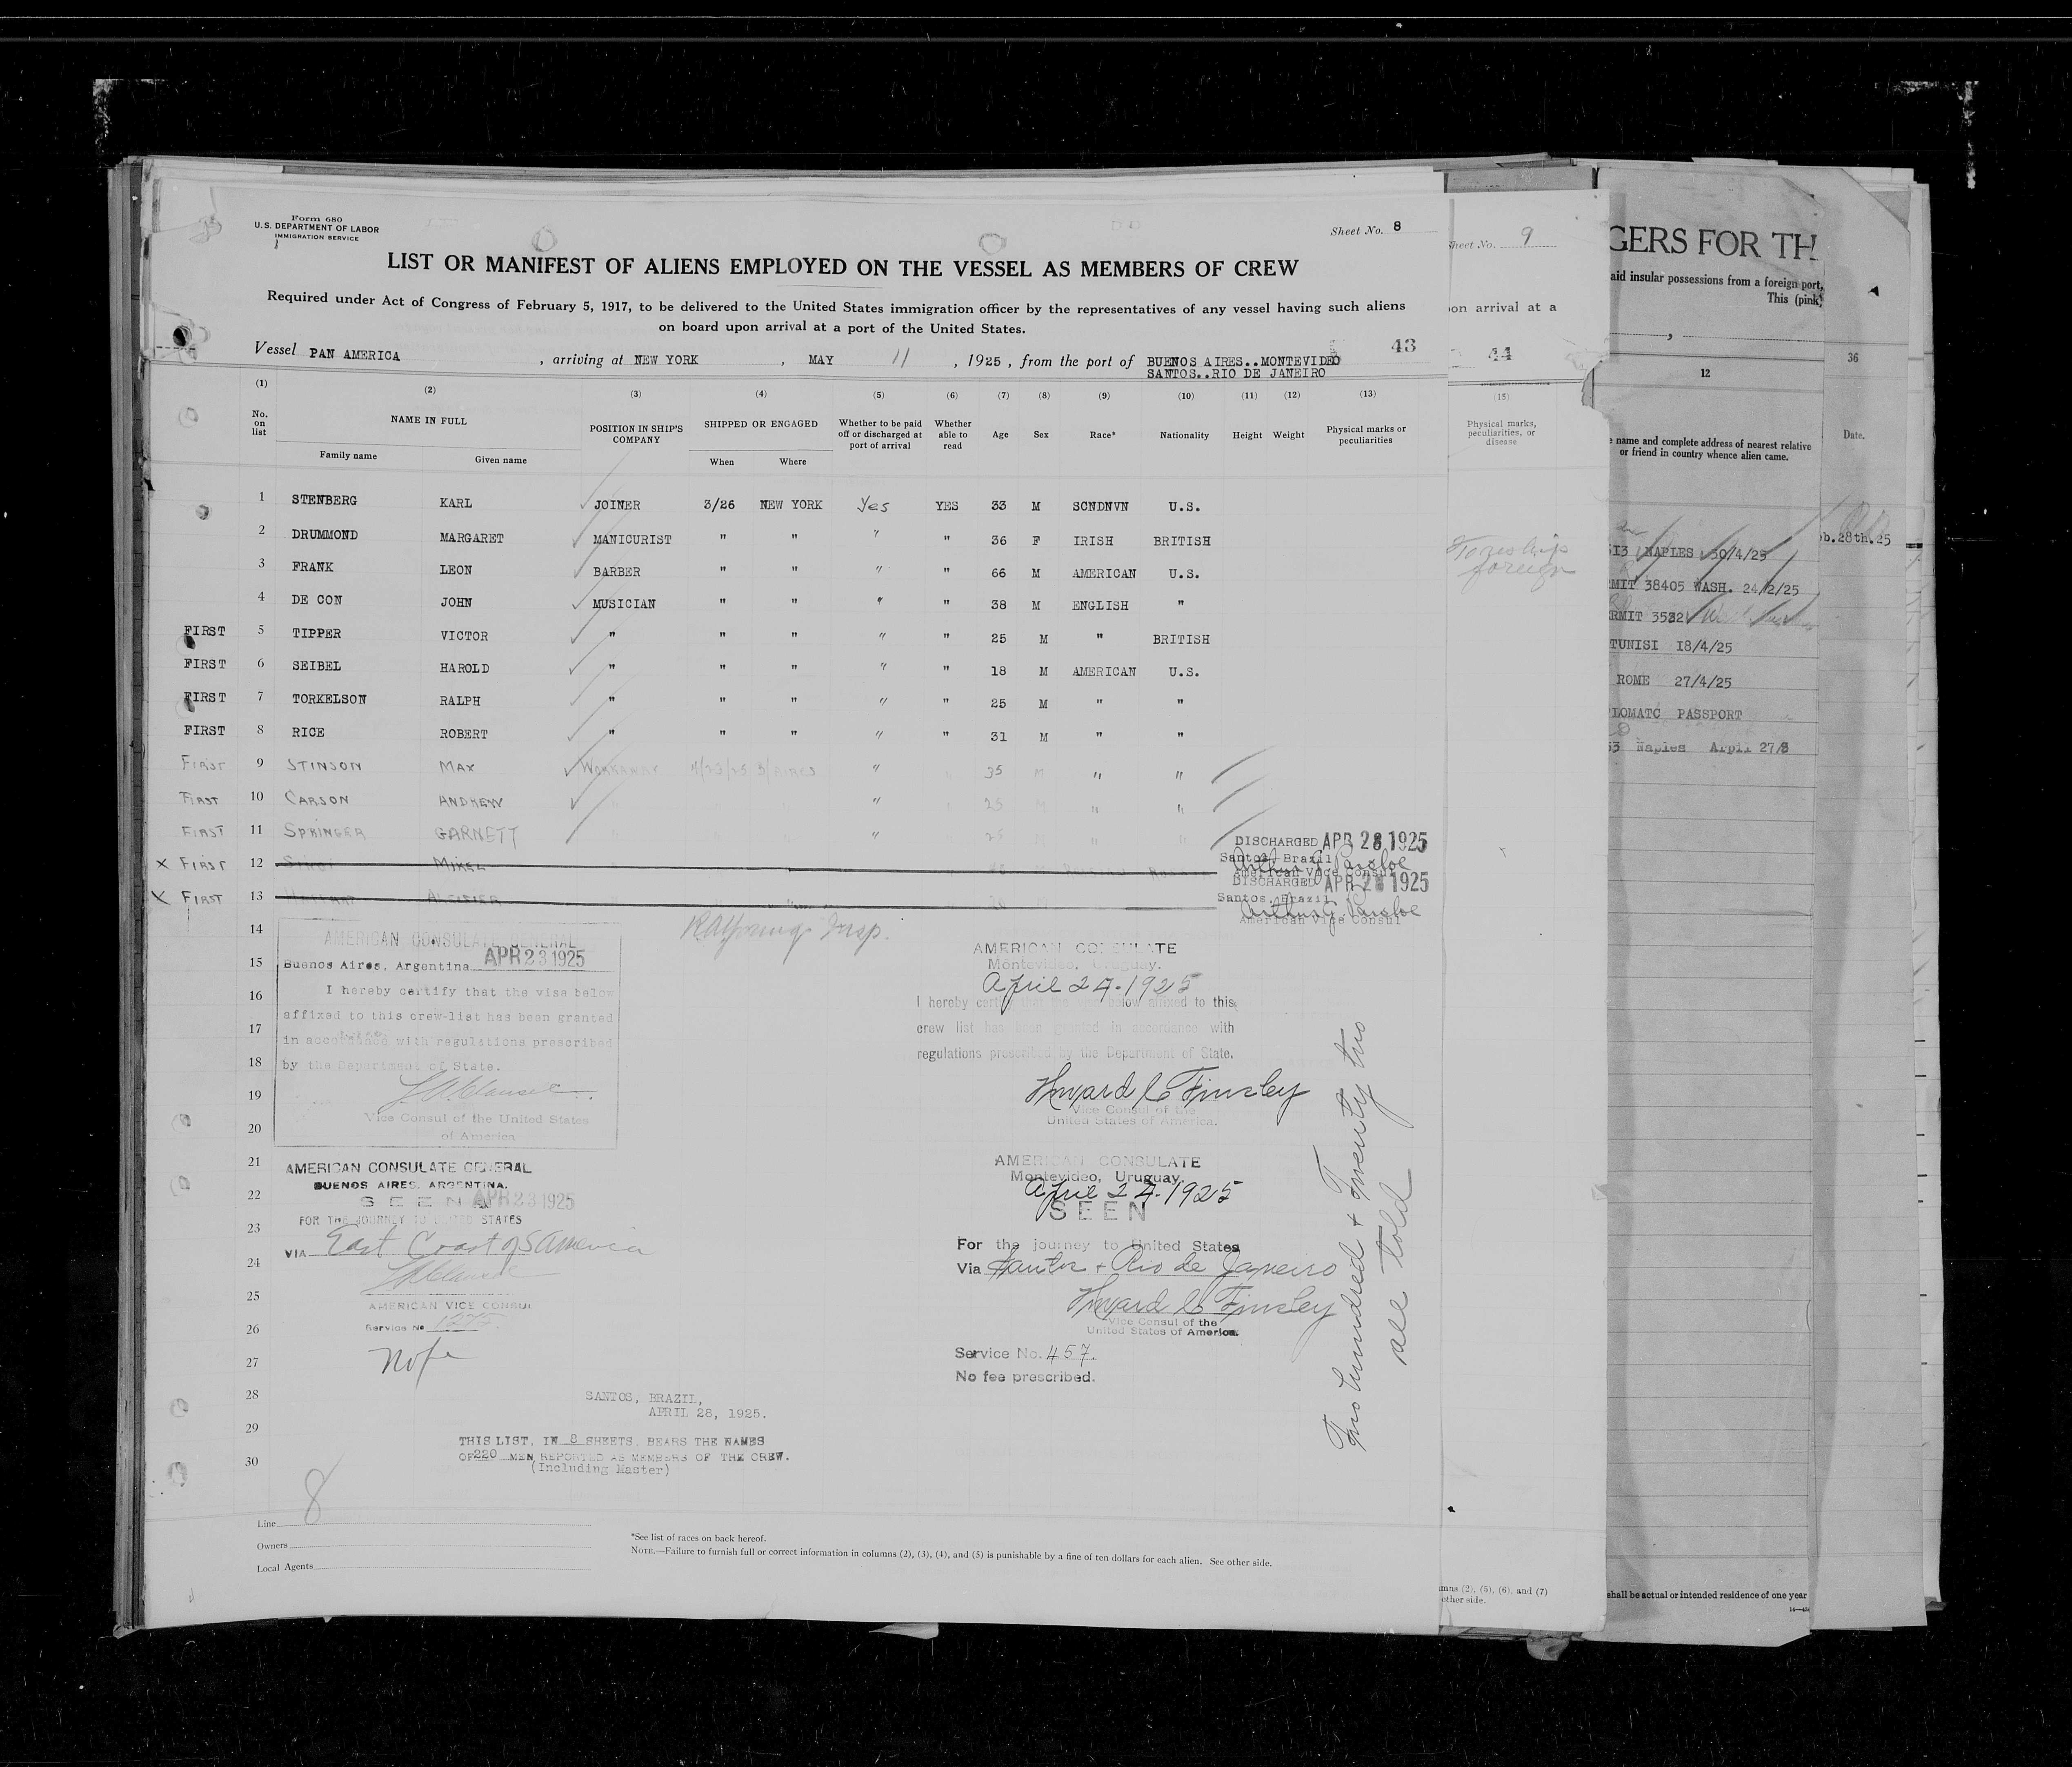 Form 680
U.S. DEPARTMENT OF LABOR
IMMIGRATION SERVICE
Sheet No. 8
LIST OR MANIFEST OF ALIENS EMPLOYED ON THE VESSEL AS MEMBERS OF CREW
Required under Act of Congress of February 5, 1917, to be delivered to the United States immigration officer by the representatives of any vessel having such aliens
on board upon arrival at a port of the United States.
43
Vessel PAN AMERICA, arriving at NEW YORK, MAY 11, 1925, from the port of BUENOS AIRES..MONTEVIDEO
SANTOS..RIO DE JANEIRO
(1) (2) (3) (4) (5) (6) (7) (8) (9) (10) (11) (12) (13)
No. on list NAME IN FULL POSITION IN SHIP'S COMPANY SHIPPED OR ENGAGED Whether to be paid off or discharged at port of arrival Whether able to read Age Sex Race* Nationality Height Weight Physical marks or peculiarities
Family name Given name When Where
1 STENBERG KARL JOINER 3/26 NEW YORK Yes YES 33 M SCNDNVN U.S.
2 DRUMMOND MARGARET MANICURIST " " " " 36 F IRISH BRITISH
3 FRANK LEON BARBER " " " " 66 M AMERICAN U.S.
4 DE CON JOHN MUSICIAN " " " " 38 M ENGLISH "
FIRST 5 TIPPER VICTOR " " " " " 25 M " BRITISH
FIRST 6 SEIBEL HAROLD " " " " " 18 M AMERICAN U.S.
FIRST 7 TORKELSON RALPH " " " " " 25 M " "
FIRST 8 RICE ROBERT " " " " " 31 M " "
FIRST 9 STINSON MAX WORKAWAY 4/23/25 B/AIRES " " 35 M " "
FIRST 10 CARSON ANDREW " " 25 M " "
FIRST 11 SPRINGER GARNETT " " " " 25 M " "
DISCHARGED APR 28 1925
X FIRST 12 MIKEL
Santos, Brazil
American Vice Consul
DISCHARGED APR 28 1925
X FIRST 13
Santos, Brazil
American Vice Consul
14
15
16
17
18
19
20
21
22
23
24
25
26
27
28
29
30
AMERICAN CONSULATE GENERAL
APR 23 1925
Buenos Aires, Argentina
I hereby certify that the visa below
affixed to this crew-list has been granted
in accordance with regulations prescribed
by the Department of State.
Vice Consul of the United States
of America
Insp.
AMERICAN CONSULATE
Montevideo, Uruguay.
April 24-1925
I hereby certify that the visa below affixed to this
crew list has been granted in accordance with
regulations prescribed by the Department of State.
Howard C Finsley
Vice Consul of the
United States of America.
AMERICAN CONSULATE GENERAL
BUENOS AIRES, ARGENTINA.
SEEN APR 23 1925
FOR THE JOURNEY TO UNITED STATES
VIA East Coast of S America
AMERICAN VICE CONSUL
Service No
No fee
AMERICAN CONSULATE
Montevideo, Uruguay.
April 24-1925
SEEN
For the journey to United States
Via Santos + Rio de Janeiro
Howard C Finsley
Vice Consul of the
United States of America.
Service No. 457.
No fee prescribed.
Two hundred + Twenty two
all told
SANTOS, BRAZIL,
APRIL 28, 1925.
THIS LIST, IN 8 SHEETS, BEARS THE NAMES
OF 220 MEN REPORTED AS MEMBERS OF THE CREW.
(Including Master)
8
Line
Owners
Local Agents
*See list of races on back hereof.
NOTE.—Failure to furnish full or correct information in columns (2), (3), (4), and (5) is punishable by a fine of ten dollars for each alien. See other side.
Sheet No. 9
on arrival at a
44
(15)
Physical marks, peculiarities, or disease
foreign
mns (2), (5), (6), and (7)
other side.
GERS FOR TH
aid insular possessions from a foreign port,
This (pink)
12
name and complete address of nearest relative
or friend in country whence alien came.
513 NAPLES 30/4/25
RMIT 38405 WASH. 24/2/25
RMIT 3532
TUNISI 18/4/25
ROME 27/4/25
LOMATC PASSPORT
53 Naples Arpil 27/8
shall be actual or intended residence of one year
36
Date.
b.28th.25